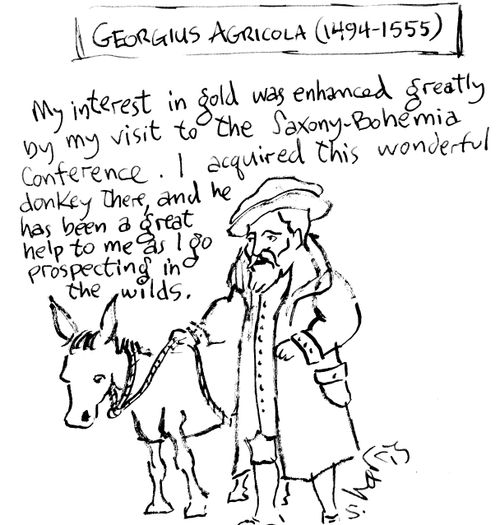 GEORGIUS AGRICOLA (1494-1555)
My interest in gold was enhanced greatly
by my visit to the Saxony-Bohemia
Conference. I acquired this wonderful
donkey there, and he
has been a great
help to me as I go
prospecting in
the wilds.
S. Harris